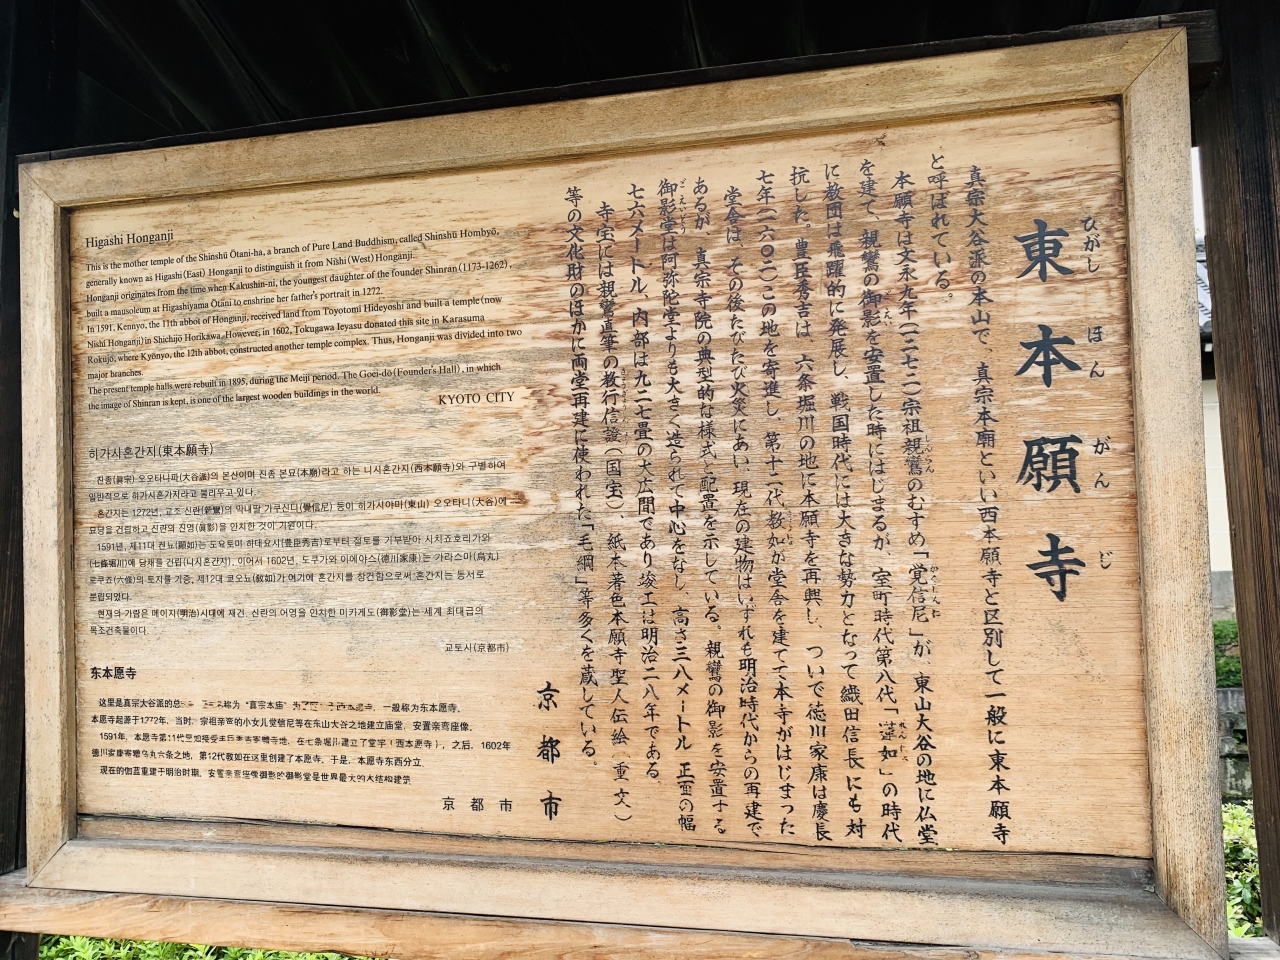 東本願寺
ひがし ほん がん じ
真宗大谷派の本山で、真宗本廟といい西本願寺と区別して一般に東本願寺
と呼ばれている。
本願寺は文永九年(一二七二)宗祖親鸞のむすめ「覚信尼」が、東山大谷の地に仏堂
を建て、親鸞の御影を安置した時にはじまるが、室町時代第八代「蓮如」の時代
に教団は飛躍的に発展し、戦国時代には大きな勢力となって織田信長にも対
抗した。豊臣秀吉は 六条堀川の地に本願寺を再興し、ついで徳川家康は慶長
七年(一六〇二)この地を寄進し、第十二代教如が堂舎を建てて本寺がはじまった
堂舎は、その後たびたび火災にあい、現在の建物はいずれも明治時代からの再建で
あるが、真宗寺院の典型的な様式と配置を示している。親鸞の御影を安置する
御影堂は阿弥陀堂よりも大きく造られて中心をなし、高さ三八メートル 正面の幅
七六メートル、内部は九二七畳の大広間であり竣工は明治二八年である。
寺宝には親鸞直筆の教行信證(国宝)、紙本著色本願寺聖人伝絵(重文)
等の文化財のほかに両堂再建に使われた「毛綱」等多くを蔵している。
京都市
Higashi Honganji
This is the mother temple of the Shinshū Ōtani-ha, a branch of Pure Land Buddhism, called Shinshū Hombyō,
generally known as Higashi(East) Honganji to distinguish it from Nishi(West)Honganji.
Honganji originates from the time when Kakushin-ni, the youngest daughter of the founder Shinran (1173-1262),
built a mausoleum at Higashiyama Ōtani to enshrine her father's portrait in 1272.
In 1591, Kennyo, the 11th abbot of Honganji, received land from Toyotomi Hideyoshi and built a temple(now
Nishi Honganji) in Shichijō Horikawa. However, in 1602, Tokugawa Ieyasu donated this site in Karasuma
Rokujō, where Kyōnyo, the 12th abbot, constructed another temple complex. Thus, Honganji was divided into two
major branches.
The present temple halls were rebuilt in 1895, during the Meiji period. The Goei-dō(Founder's Hall), in which
the image of Shinran is kept, is one of the largest wooden buildings in the world.
KYOTO CITY
히가시혼간지(東本願寺)
진종(眞宗) 오오타니파(大谷派)의 본산이며 진종 본묘(本廟)라고 하는 니시혼간지(西本願寺)와 구별하여
일반적으로 히가시혼가지라고 불리우고 있다.
혼간지는 1272년, 교조 신란(新鸞)의 막내딸 가쿠신디(覺信尼) 등이 히가시야마(東山) 오오타니(大谷)에
묘당을 건립하고 신란의 진영(眞影)을 안치한 것이 기원이다.
1591년, 제11대 켄뇨(顯如)는 도요토미 히데요시(豊臣秀吉)로부터 절토를 기부받아 시치죠호리가와
(七條堀川)에 당재를 건립(니시혼간지), 이어서 1602년, 도쿠가와 이에야스(德川家康)는 가라스마(烏丸)
로쿠죠(六條)의 토지를 기증, 제12대 쿄오뇨(敎如)가 여기에 혼간지를 창건함으로써 혼간지는 동서로
분립되었다.
현재의 가람은 메이지(明治)시대에 재건, 신란의 어영을 안치한 미카게도(御影堂)는 세계 최대급의
목조건축물이다.
교토시(京都市)
东本愿寺
这里是真宗大谷派的总 称为“真宗本庙” 一般称为东本愿寺。
本愿寺起源于1272年，当时，宗祖亲鸾的小女儿觉信尼等在东山大谷之地建立庙堂，安置亲鸾座像。
1591年，本愿寺第11代 寺地，在七条堀川建立了堂宇（西本愿寺），之后，1602年
德川家康寄赠乌丸六条之地，第12代教如在这里创建了本愿寺，于是，本愿寺东西分立。
现在的伽蓝重建于明治时期，安置亲鸾座像御影的御影堂是世界最大的木结构建筑
京都市